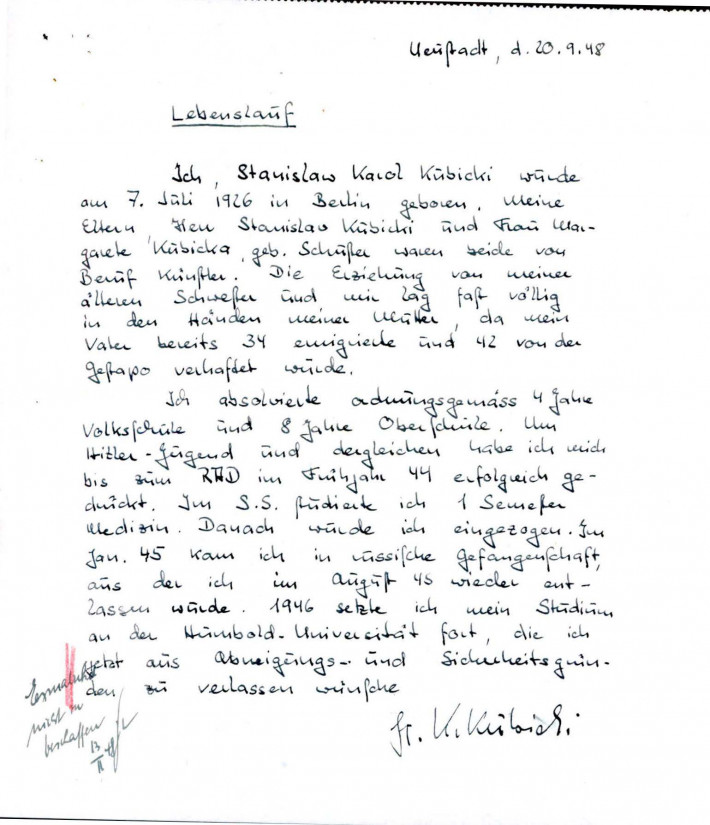 Neustadt, d. 20.9.48
Lebenslauf
Ich, Stanislaw Karol Kubicki wurde
am 7. Juli 1926 in Berlin geboren. Meine
Eltern, Herr Stanislav Kubicki und Frau Mar-
garete Kubicka, geb. Schuster waren beide von
Beruf Künstler. Die Erziehung von meiner
älteren Schwester und mir lag fast völlig
in den Händen meiner Mutter, da mein
Vater bereits 34 emigrierte und 42 von der
Gestapo verhaftet wurde.
Ich absolvierte ordnungsgemäss 4 Jahre
Volksschule und 8 Jahre Oberschule. Um
Hitler-Jugend und dergleichen habe ich mich
bis zum RAD im Frühjahr 44 erfolgreich ge-
drückt. Im S.S. studierte ich 1 Semester
Medizin. Danach wurde ich eingezogen. Im
Jan. 45 kam ich in russische Gefangenschaft,
aus der ich im August 45 wieder ent-
lassen wurde. 1946 setzte ich mein Studium
an der Humbold-Universität fort, die ich
jetzt aus Abneigungs- und Sicherheitsgrün-
den zu verlassen wünsche
St. K. Kubicki
nicht zu
beschaffen